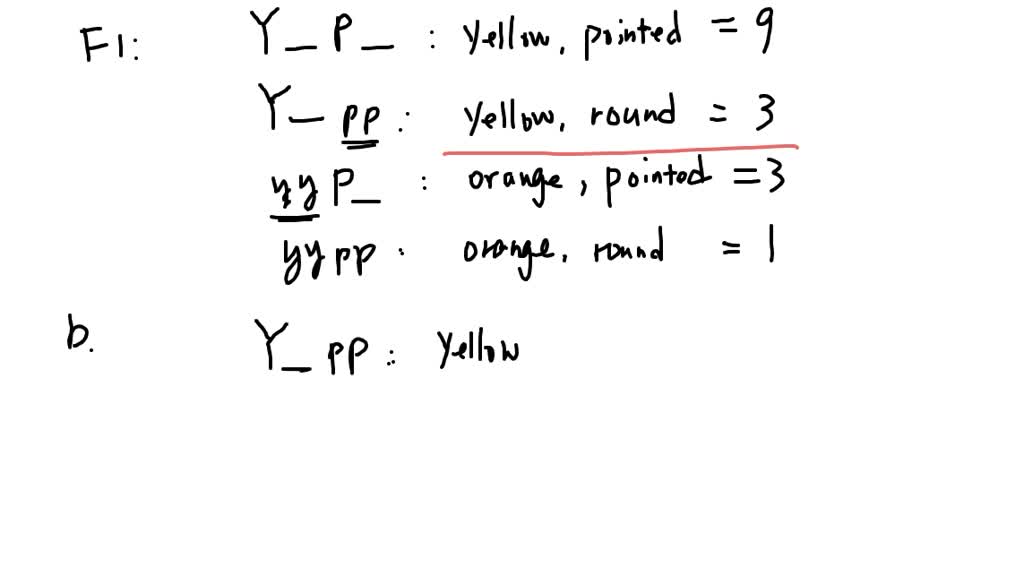 F1: Y_P_ : yellow, pointed = 9
Y_pp : yellow, round = 3
yyP_ : orange, pointed = 3
yypp : orange, round = 1
b. Y_pp : Yellow